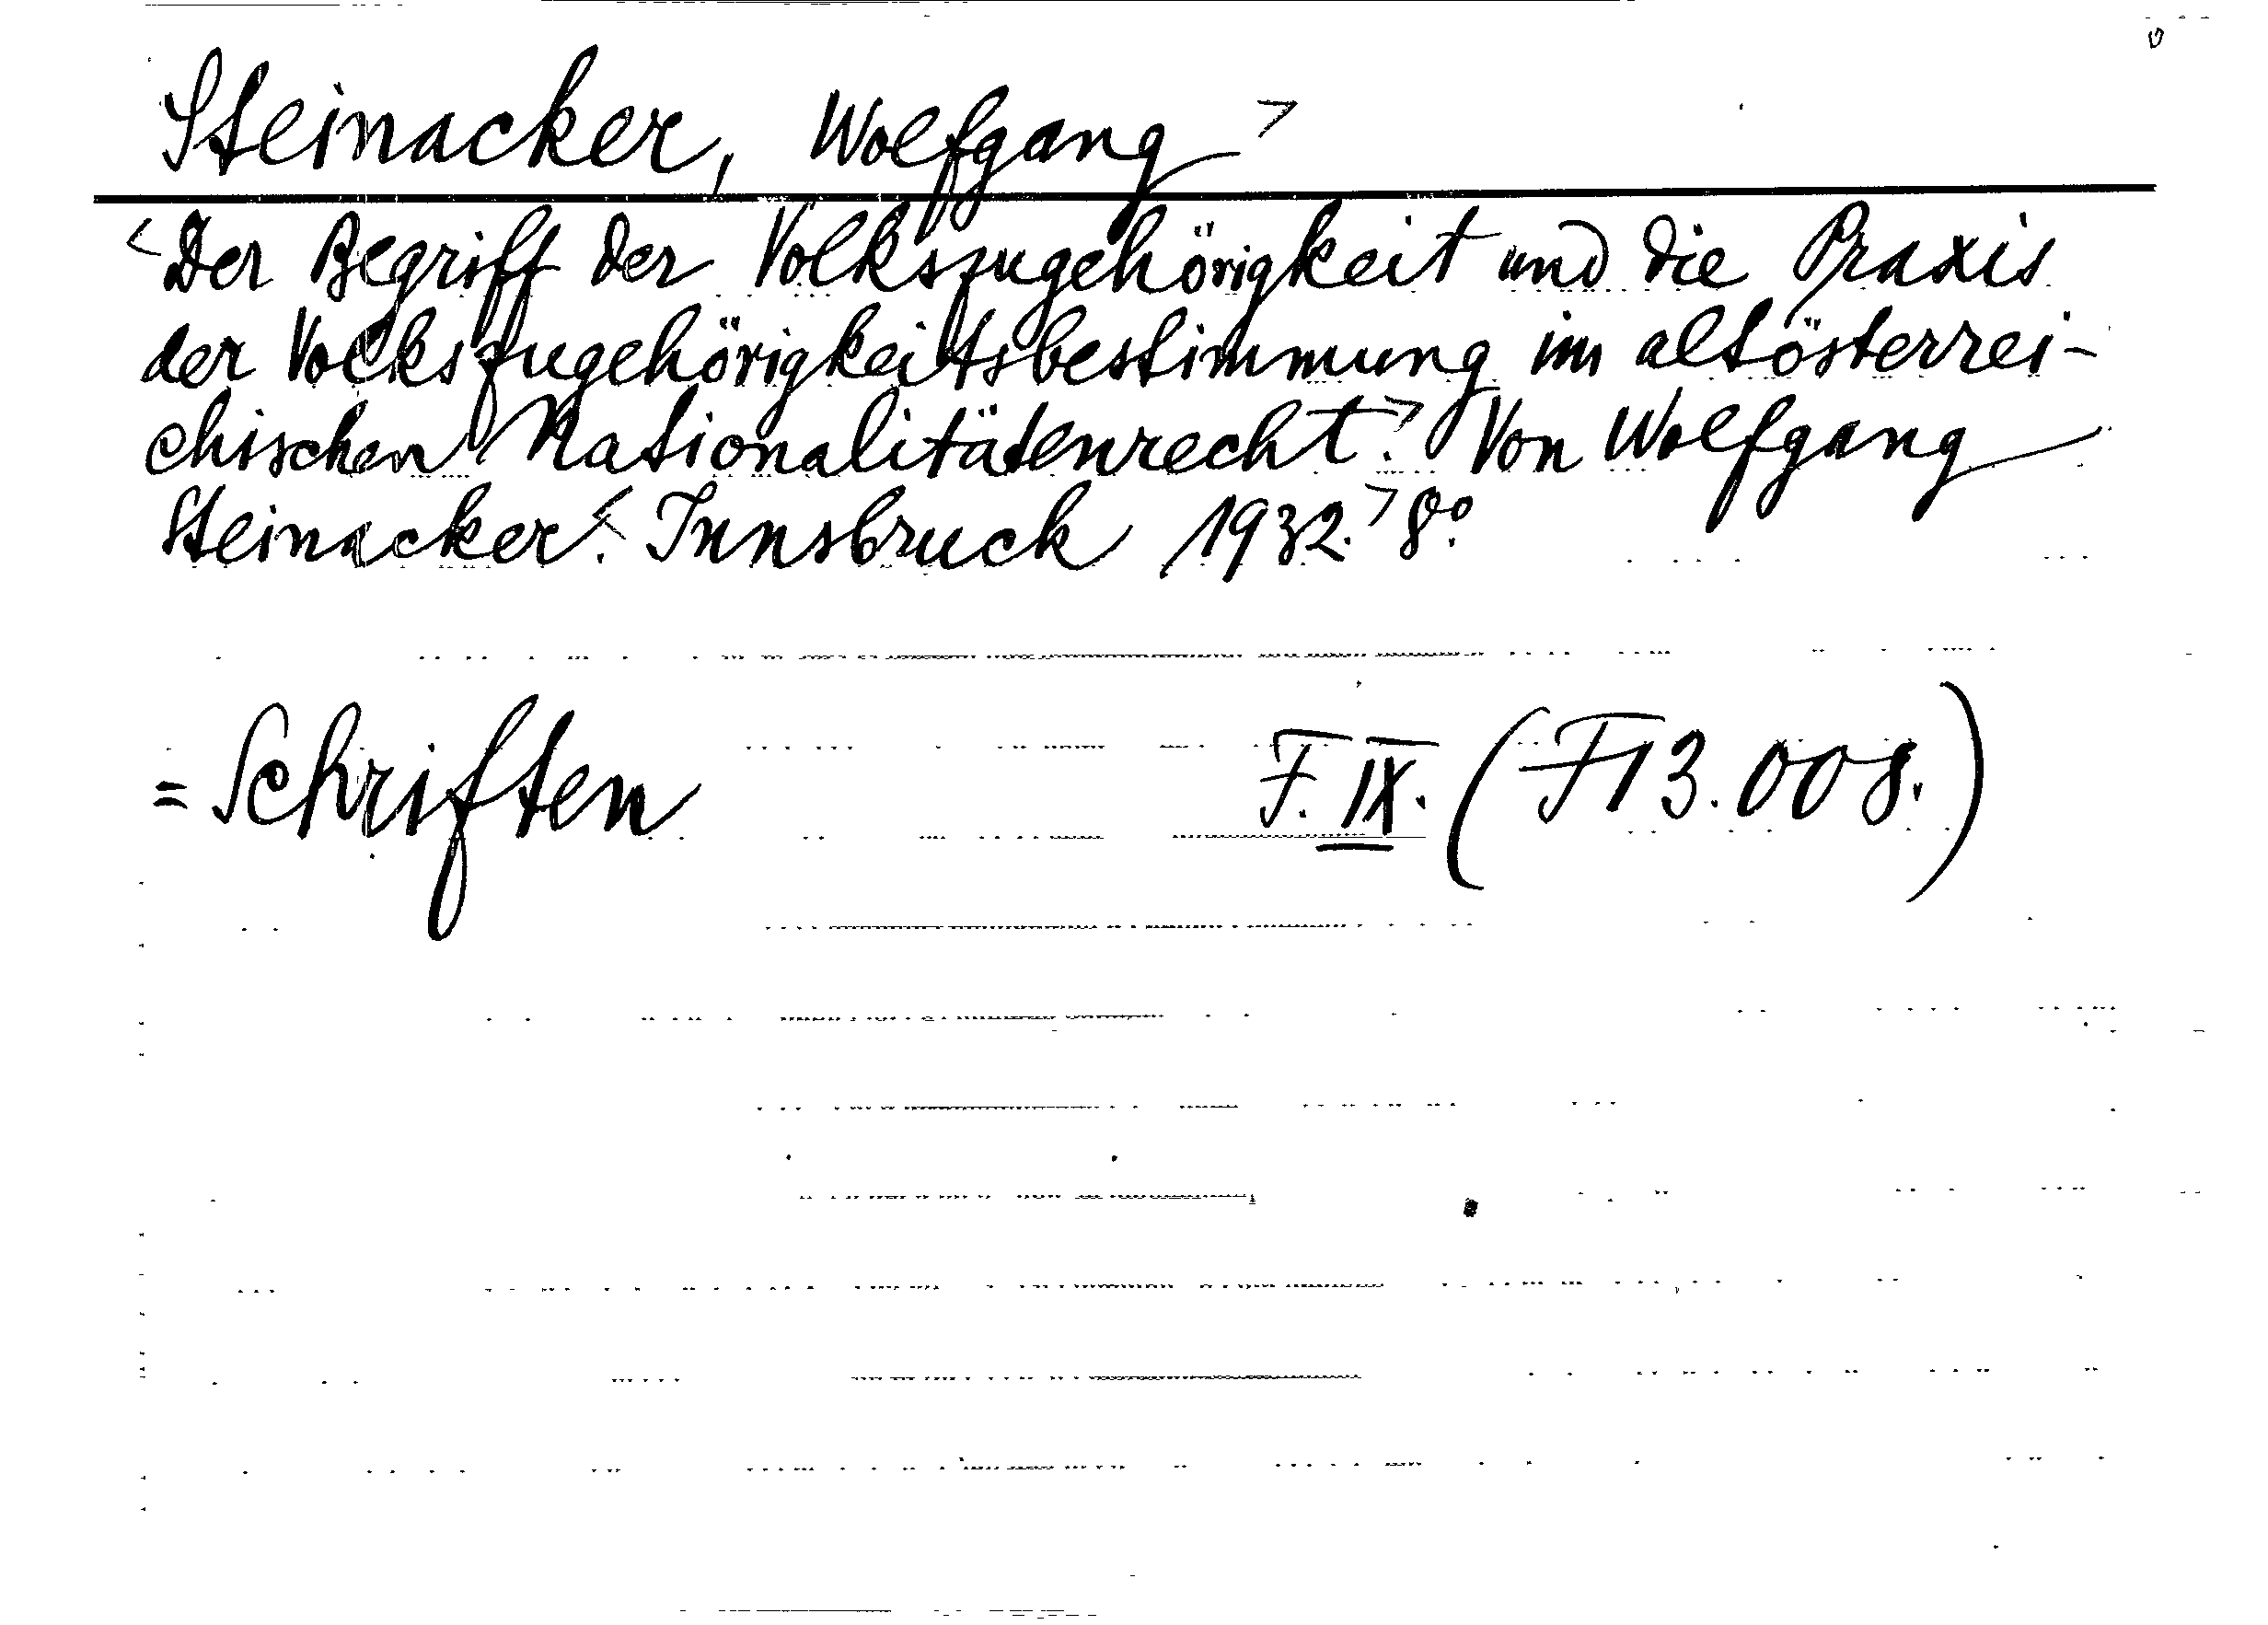 Steinacker, Wolfgang >
< Der Begriff der Volkszugehörigkeit und die Praxis
der Volkszugehörigkeitsbestimmung im altösterrei-
chischen Nationalitätenrecht.> Von Wolfgang
Steinacker.< Innsbruck 1932.> 8°.
= Schriften F. IX. (F13.008.)